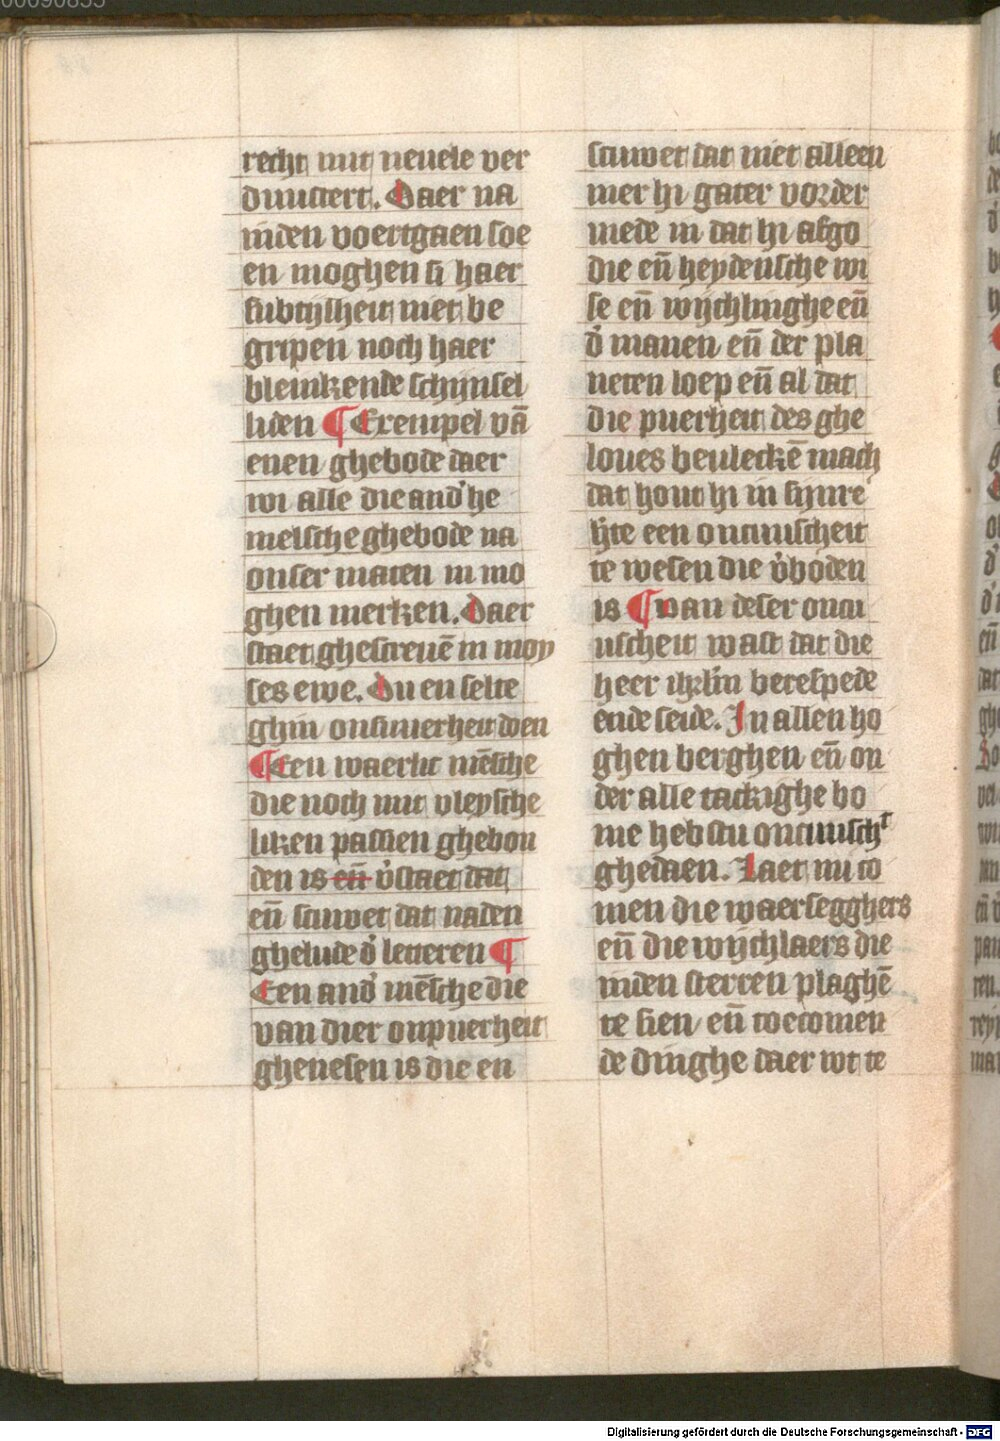 recht mit neuele ver
duustert. Daer na
inden voertgaen soe
en moghen si haer
subtijlheit niet be
gripen noch haer
blenkende schijnsel
liden ¶ Exempel vā
enen ghebode daer
wi alle die and᷑ he
melsche ghebode na
onser maten in mo
ghen merken. Daer
staet ghescreuē in moy
ses ewe. Du en selte
ghin onsuuerheit doen
¶ Een waerlic mēsche
die noch mit vleysche
liken passien ghebon
den is eñ v᷑staet dat
eñ scuwet dat na den
ghelude d᷑ letteren ¶
Een and᷑ mēsche die
van dier onpuerheit
ghenesen is die en
scuwet dat niet alleen
mer hi gater vorder
mede in dat hi afgo
die eñ heydensche wi
se eñ wijchlinghe eñ
d᷑ manen eñ der pla
neten loep eñ al dat
die puerheit des ghe
loues beuleckē mach
dat hout hi in sijnre
h᷑te een oncuuscheit
te wesen die v᷑boden
is ¶ van deser oncu
uscheit wast dat die
heer ihrl̄m berespede
ende seide. In allen ho
ghen berghen eñ on
der alle tackighe bo
me hebstu oncuuschᵗ
ghedaen. Laet nu co
men die waersegghers
eñ die wijchlaers die
inden sterren plaghē
te sien eñ toecomen
de dinghe daer wt te